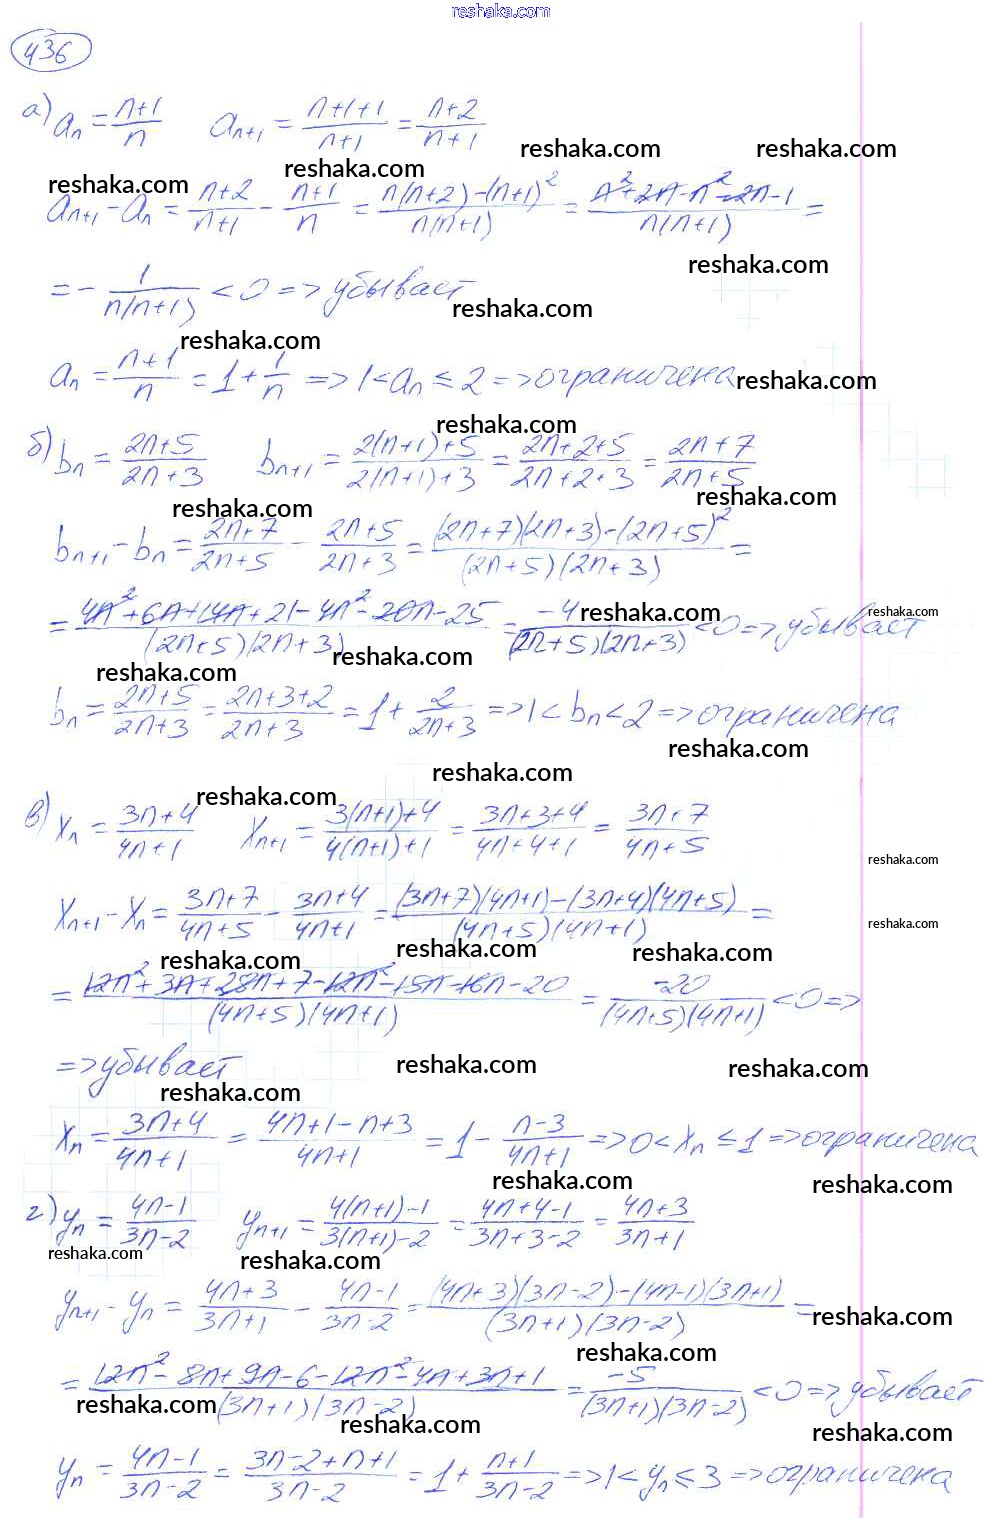 reshaka.com
436
а) aₙ = (n+1)/n   aₙ₊₁ = (n+1+1)/(n+1) = (n+2)/(n+1)
reshaka.com reshaka.com
reshaka.com
reshaka.com
aₙ₊₁ - aₙ = (n+2)/(n+1) - (n+1)/n = (n(n+2)-(n+1)²)/(n(n+1)) = (n²+2n-n²-2n-1)/(n(n+1)) =
reshaka.com
= - 1/(n(n+1)) < 0 => убывает
reshaka.com
reshaka.com
aₙ = (n+1)/n = 1 + 1/n => 1 < aₙ ≤ 2 => ограничена reshaka.com
reshaka.com
б) bₙ = (2n+5)/(2n+3)   bₙ₊₁ = (2(n+1)+5)/(2(n+1)+3) = (2n+2+5)/(2n+2+3) = (2n+7)/(2n+5)
reshaka.com
reshaka.com
bₙ₊₁ - bₙ = (2n+7)/(2n+5) - (2n+5)/(2n+3) = ((2n+7)(2n+3)-(2n+5)²)/((2n+5)(2n+3)) =
reshaka.com reshaka.com
= (4n²+6n+14n+21-4n²-20n-25)/((2n+5)(2n+3)) = -4/((2n+5)(2n+3)) < 0 => убывает
reshaka.com
reshaka.com
bₙ = (2n+5)/(2n+3) = (2n+3+2)/(2n+3) = 1 + 2/(2n+3) => 1 < bₙ < 2 => ограничена
reshaka.com
reshaka.com
reshaka.com
в) xₙ = (3n+4)/(4n+1)   xₙ₊₁ = (3(n+1)+4)/(4(n+1)+1) = (3n+3+4)/(4n+4+1) = (3n+7)/(4n+5)
reshaka.com
xₙ₊₁ - xₙ = (3n+7)/(4n+5) - (3n+4)/(4n+1) = ((3n+7)(4n+1)-(3n+4)(4n+5))/((4n+5)(4n+1)) =
reshaka.com
reshaka.com reshaka.com
reshaka.com
= (12n²+3n+28n+7-12n²-15n-16n-20)/((4n+5)(4n+1)) = -20/((4n+5)(4n+1)) < 0 =>
=> убывает
reshaka.com reshaka.com
reshaka.com
xₙ = (3n+4)/(4n+1) = (4n+1-n+3)/(4n+1) = 1 - (n-3)/(4n+1) => 0 < xₙ ≤ 1 => ограничена
reshaka.com reshaka.com
г) yₙ = (4n-1)/(3n-2)   yₙ₊₁ = (4(n+1)-1)/(3(n+1)-2) = (4n+4-1)/(3n+3-2) = (4n+3)/(3n+1)
reshaka.com
reshaka.com
yₙ₊₁ - yₙ = (4n+3)/(3n+1) - (4n-1)/(3n-2) = ((4n+3)(3n-2)-(4n-1)(3n+1))/((3n+1)(3n-2)) =
reshaka.com
reshaka.com
= (12n²-8n+9n-6-12n²-4n+3n+1)/((3n+1)(3n-2)) = -5/((3n+1)(3n-2)) < 0 => убывает
reshaka.com
reshaka.com
reshaka.com
yₙ = (4n-1)/(3n-2) = (3n-2+n+1)/(3n-2) = 1 + (n+1)/(3n-2) => 1 < yₙ ≤ 3 => ограничена